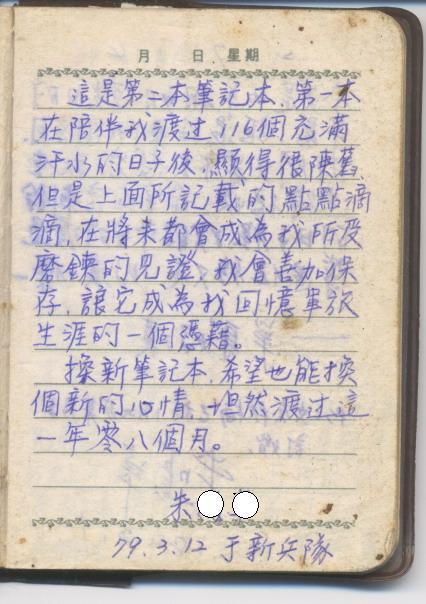 月　日 星期
這是第二本筆記本，第一本
在陪伴我渡过116個充滿
汗水的日子後，顯得很陳舊，
但是上面所記載的點點滴
滴，在將来都會成為我所受
磨鍊的見證，我會善加保
存，讓它成為我回憶軍旅
生涯的一個憑藉。
換新筆記本，希望也能換
個新的心情，坦然渡过這
一年零八個月。
朱
79.3.12 于新兵隊